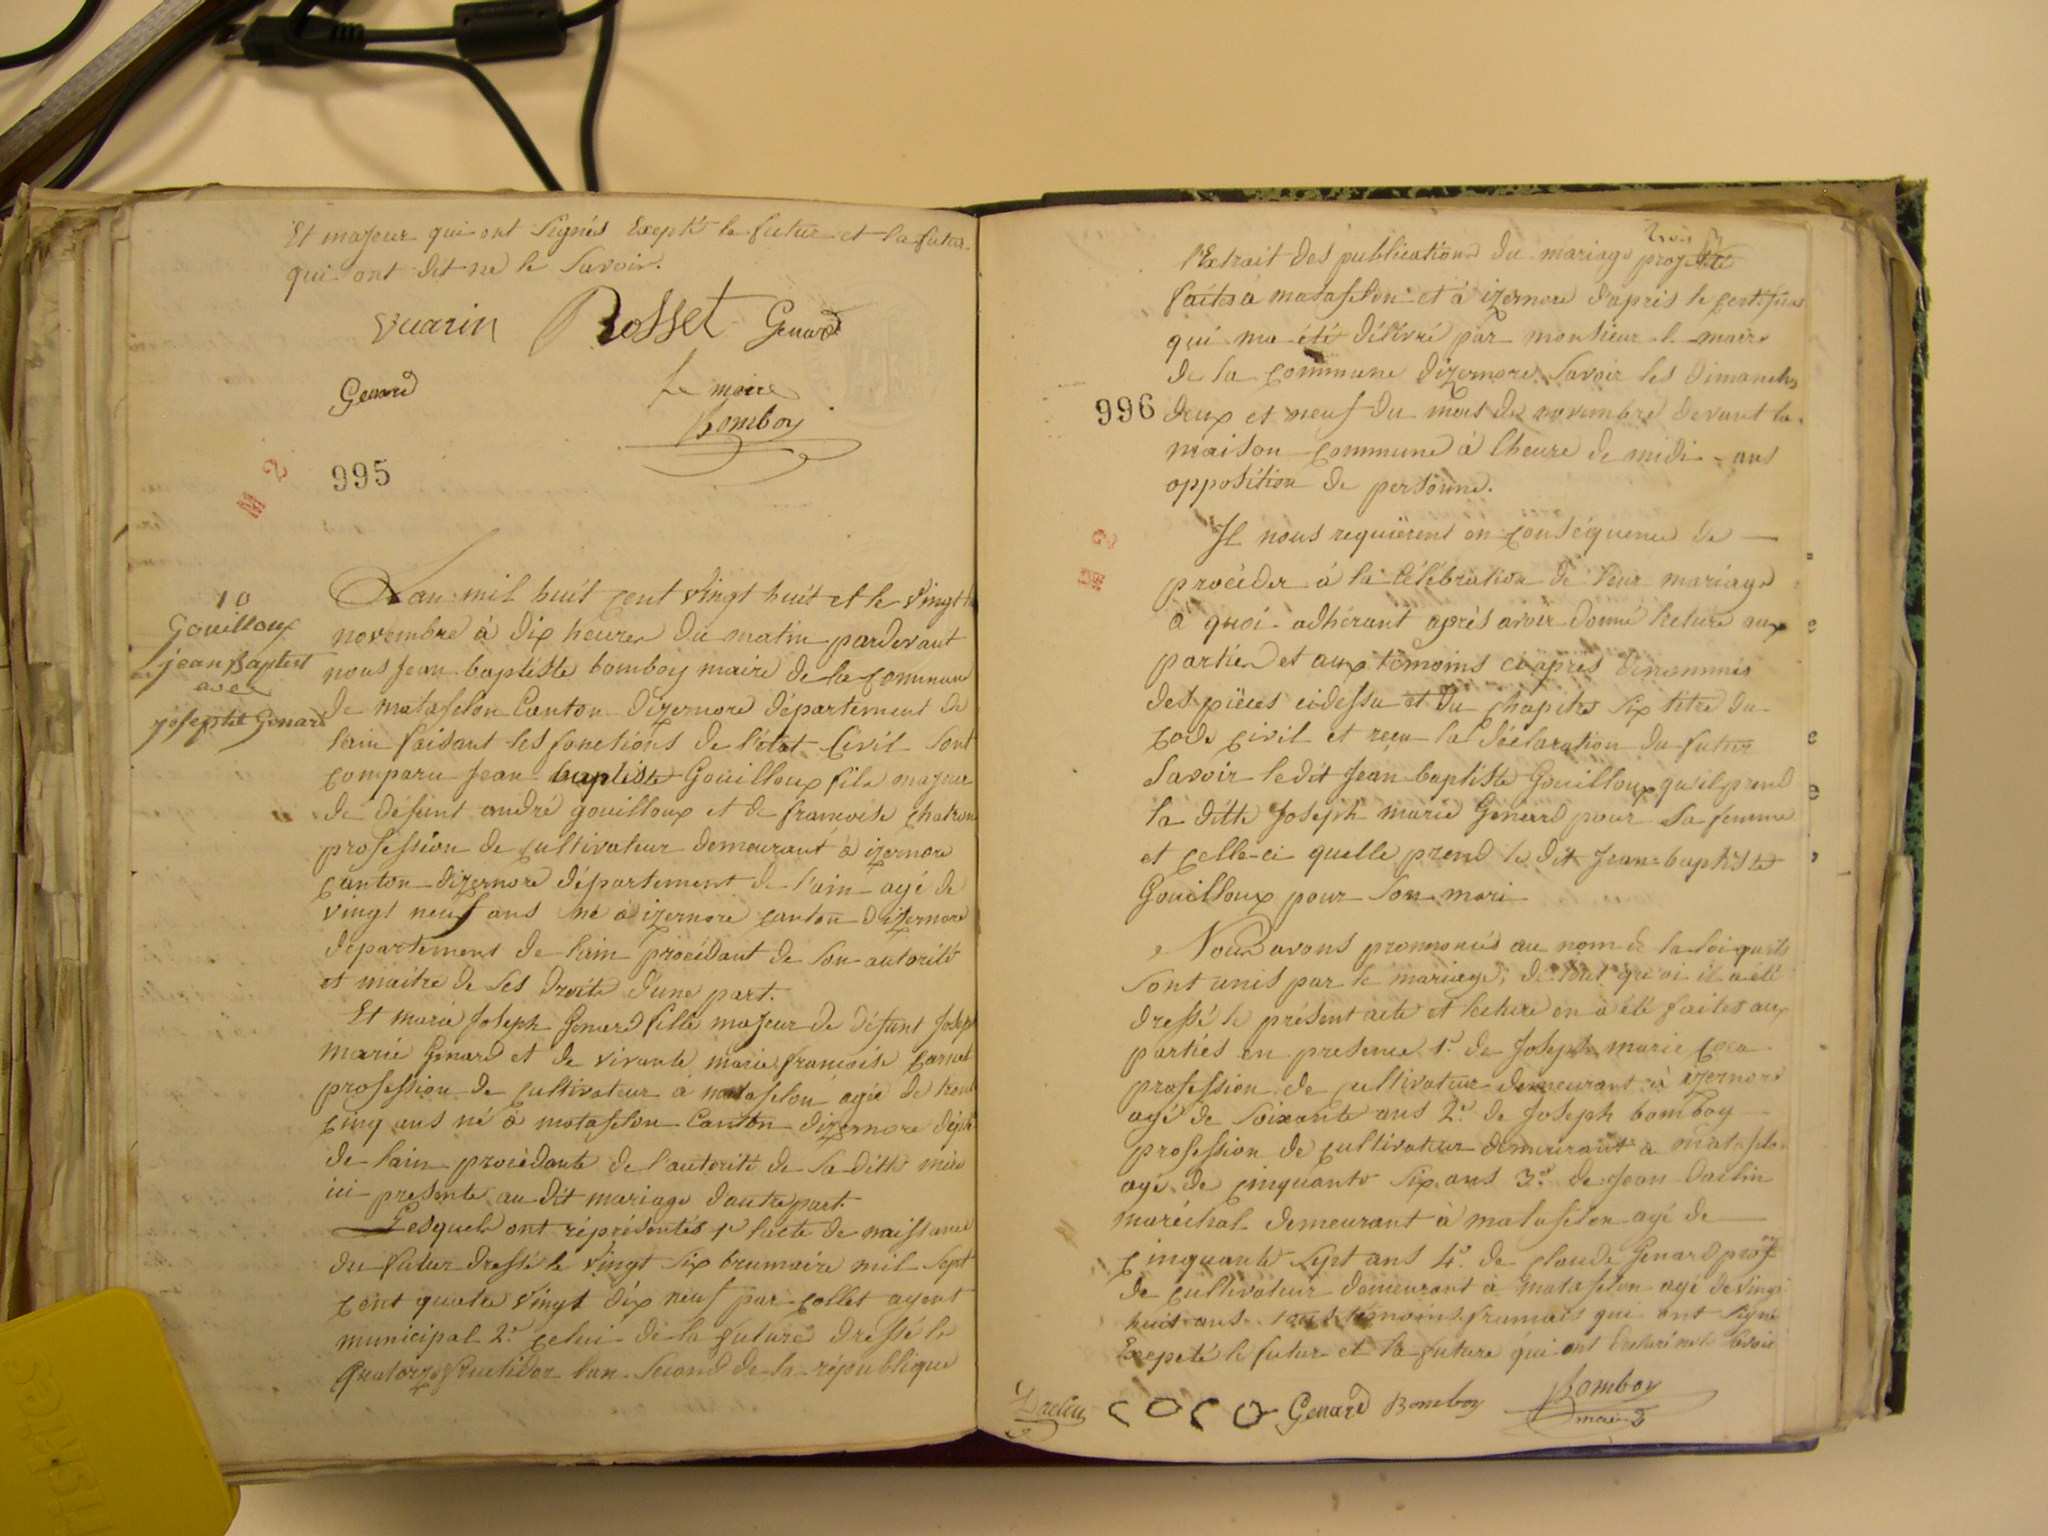 Et majeur qui ont signés Exepté le futur et la futur
qui ont dit ne le savoir.
Vuarin Rosset Genard
Genard Le maire
Bomboy
995
M 2
10
Gouilloux
jean Baptist
avec
josephte Genard
Lan mil huit cent vingt huit et le vingt
novembre à dix heures du matin pardevant
nous Jean baptiste bomboy maire de la commune
de matafelon Canton dizernore département de
lain faisant les fonctions de l'état Civil sont
comparu Jean baptiste Gouilloux fils majeur
de défunt andré gouilloux et de francoise chatron
profession de cultivateur demeurant à izernore
canton dizernore département de l'ain agé de
vingt neuf ans né à izernore canton dizernore
département de lain procédant de son autorité
et maitre de ses droits dune part.
Et marie Joseph Genard fille majeur de défunt Joseph
marie Genard et de vivante marie francoise
profession de cultivateur a matafelon agée de trente
cinq ans né à matafelon Canton dizernore dépt
de lain procedante de l'autorité de sa ditte mère
ici presente au dit mariage dautre part.
Lesquels ont réprésentés 1º lacte de naissance
du futur dressé le vingt six brumaire mil sept
cent quatre vingt dix neuf par collet agent
municipal 2º celui de la future dressé le
quatorze fructidor lan second de la république
trois
l'Extrait des publications du mariage projetté
faites à matafelon et à izernore daprès le certificat
qui ma été délivré par monsieur le maire
de la commune dizernore savoir les dimanches
996
deux et neuf du mois de novembre devant la
maison commune à lheure de midi sans
opposition de personne.
M 2
Il nous requièrent en conséquence de
procéder à la célébration de leur mariage
a quoi adhérant après avoir donné lecture aux
parties et aux témoins ciaprès dénommés
des pièces cidessu et du chapitre six titre du
code civil et reçu la déclaration du futur
savoir ledit Jean baptiste Gouilloux qu'il prend
la ditte Joseph marie Genard pour sa femme
et celle-ci quelle prend le dit Jean-baptiste
Gouilloux pour son mari
Nous avons prononcés au nom de la loi quils
sont unis par le mariage; de tout quoi il a été
dressé le présent acte et lecture en a été faites aux
parties en presence 1º de Joseph marie coco
profession de cultivateur demeurant à izernore
agé de soixante ans 2º de Joseph bomboy
profession de cultivateur demeurant a matafelon
agé de cinquante six ans 3º de Jean Daclin
maréchal demeurant à matafelon agé de
cinquante sept ans 4º de claude Genard profon
de cultivateur demeurant à matafelon agé de vingt
huit ans tous témoins francais qui ont signé
Excepté le futur et la future qui ont déclaré ne le savoir
Daclin coco Genard Bomboy Bomboy
maire